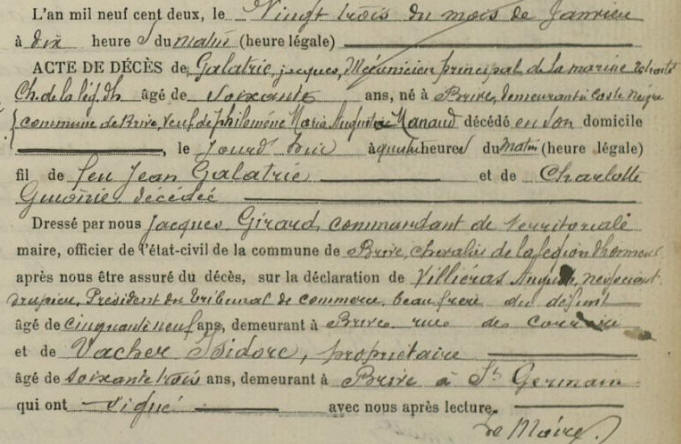 L'an mil neuf cent deux, le Vingt trois du mois de Janvier
à dix heure s du matin (heure légale)
ACTE DE DÉCÈS de Galatrie, jacques, Mécanicien principal de la marine retraité
Ch. de la lég. d'h âgé de soixante ans, né à Brive, demeurant à
commune de Brive, veuf de philomène Maria Augusta Manaud décédé en son domicile
, le jourd'hui à quatre heures du matin (heure légale)
fil de feu Jean Galatrie et de Charlotte
décédée
Dressé par nous Jacques Girard, commandant de territoriale
maire, officier de l'état-civil de la commune de Brive, chevalier de la légion d'honneur
après nous être assuré du décès, sur la déclaration de Villiéras Auguste, négociant
Président du tribunal de commerce, beau frère du défunt
âgé de cinquante neuf ans, demeurant à Brive rue des
et de Vacher Isidore, propriétaire
âgé de soixante trois ans, demeurant à Brive à St Germain
qui ont signé avec nous après lecture.
Le Maire